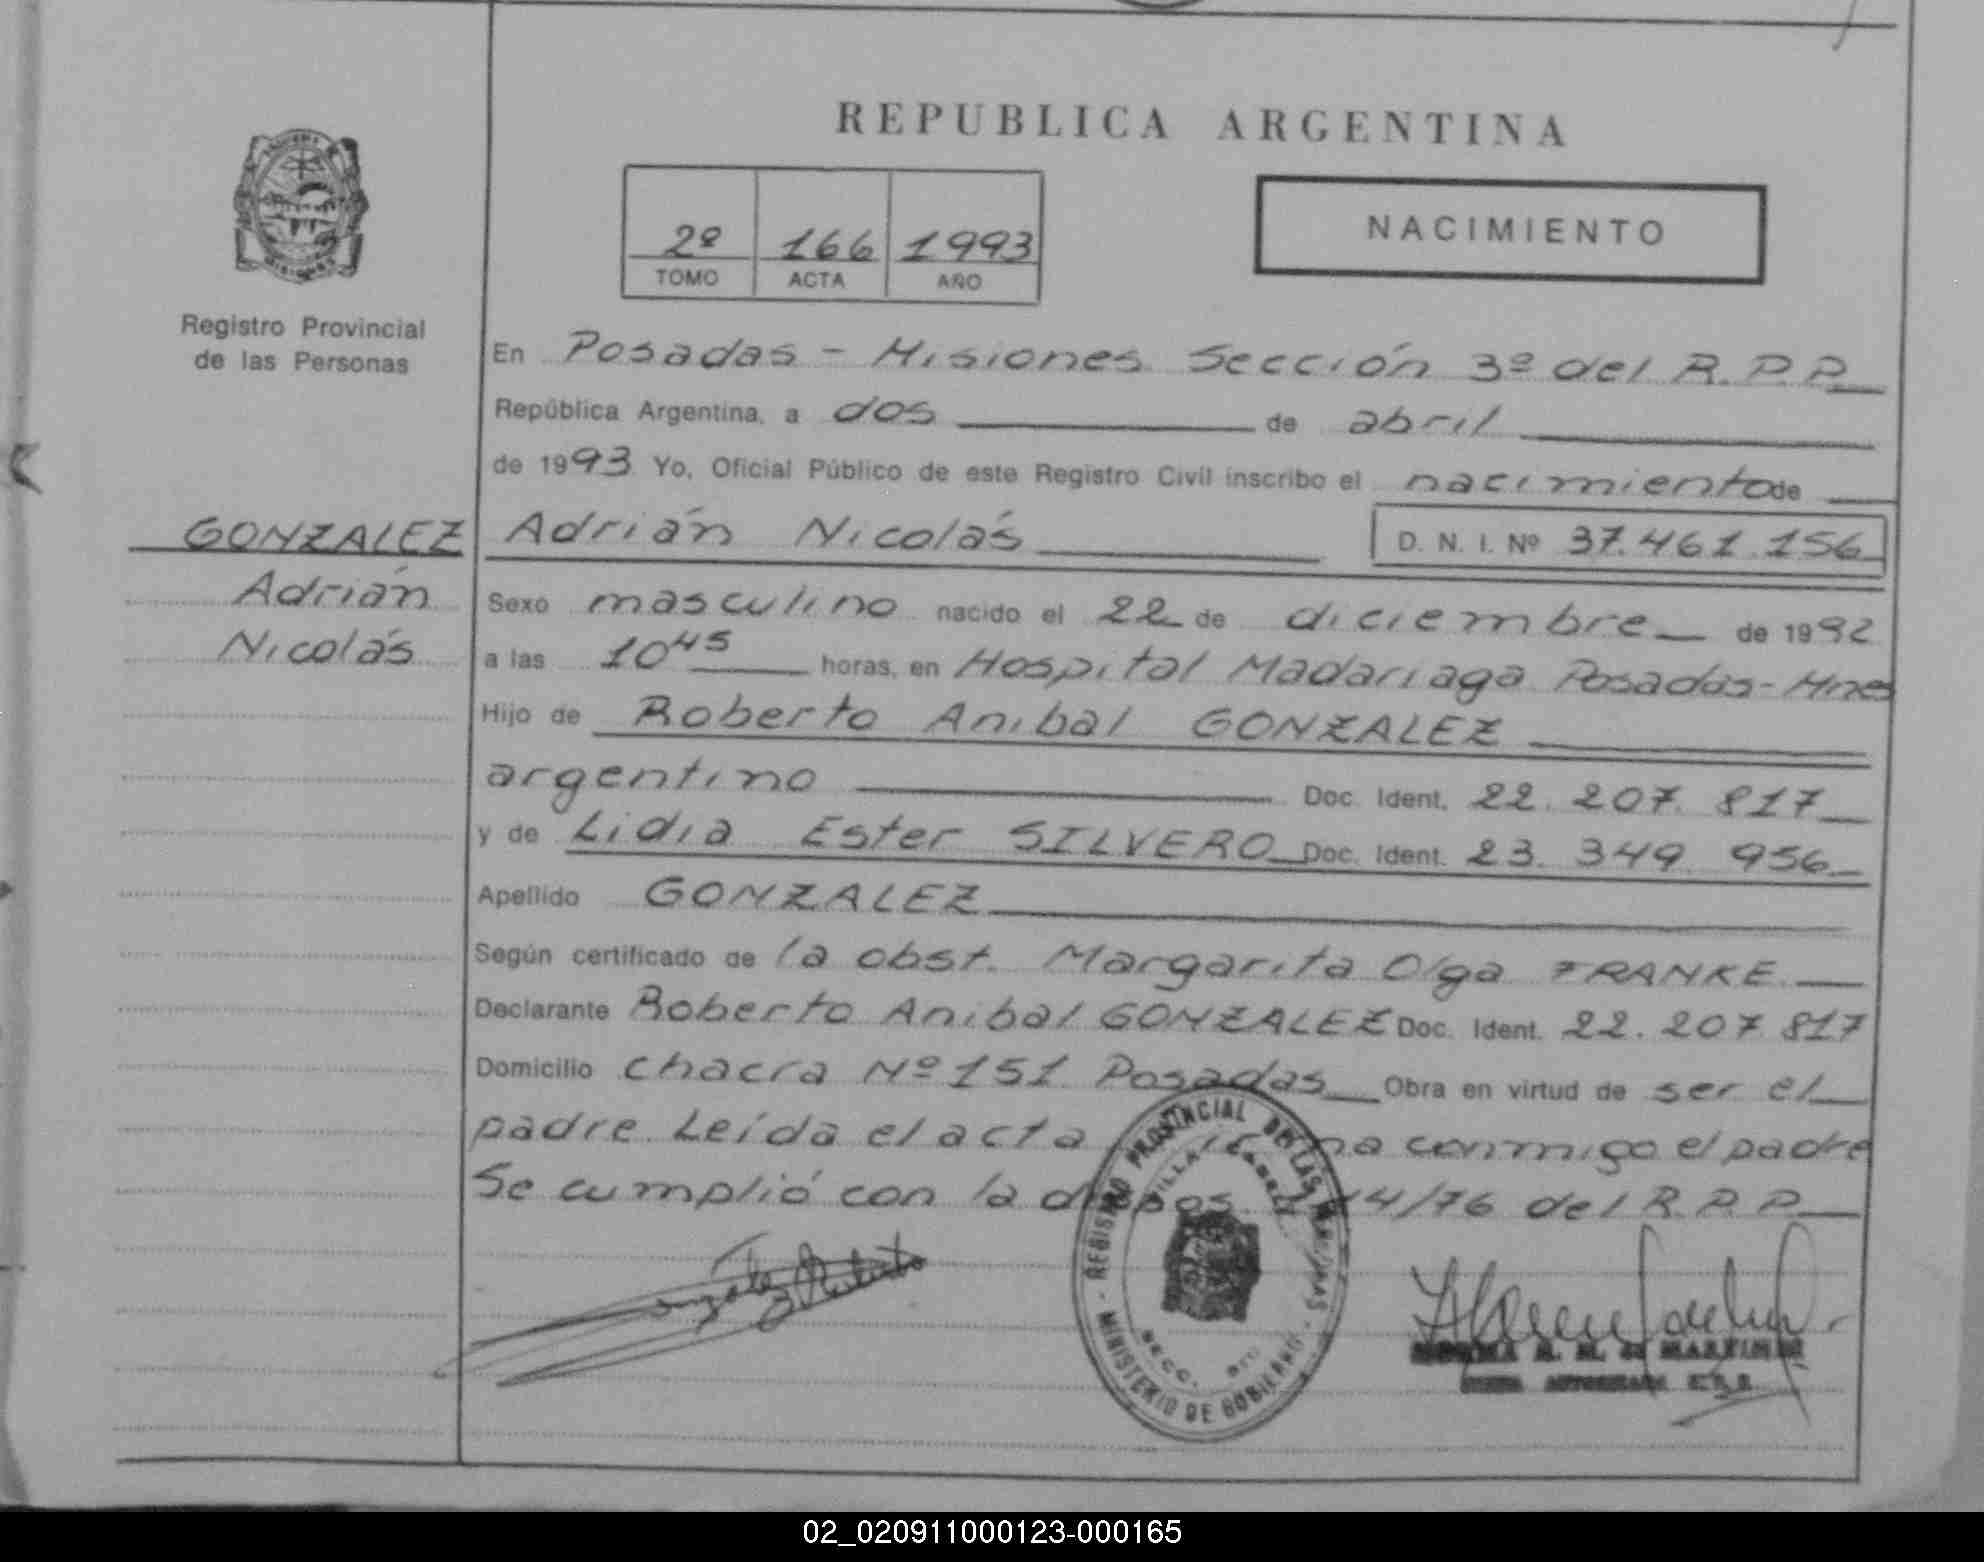 REPUBLICA ARGENTINA
2º 166 1993
TOMO ACTA AÑO
NACIMIENTO
Registro Provincial
de las Personas
En Posadas - Misiones Sección 3º del R.P.P.
República Argentina, a dos de abril
de 1993 Yo, Oficial Público de este Registro Civil inscribo el nacimiento de
GONZALEZ
Adrián
Nicolás
Adrián Nicolás D. N. I. Nº 37.461.156
Sexo masculino nacido el 22 de diciembre de 1992
a las 10 45 horas, en Hospital Madariaga Posadas-Mnes
Hijo de Roberto Anibal GONZALEZ
argentino Doc. Ident. 22.207.817
y de Lidia Ester SILVERO Doc. Ident. 23.349.956
Apellido GONZALEZ
Según certificado de la obst. Margarita Olga FRANKE
Declarante Roberto Anibal GONZALEZ Doc. Ident. 22.207.817
Domicilio chacra Nº 151 Posadas Obra en virtud de ser el
padre. Leída el acta conmigo el padre
Se cumplió con la 14/76 del R.P.P.
REGISTRO PROVINCIAL DE LAS PERSONAS
MINISTERIO DE GOBIERNO
VILLA CABELLO
SECC.
Gonzalez Roberto
M. de MARTINEZ
02_020911000123-000165